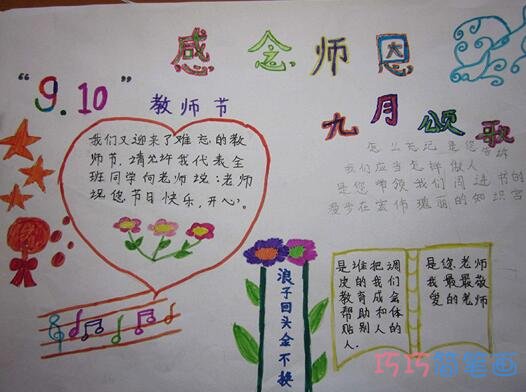 感念师恩
“9.10”
教师节
九月颂歌
我们又迎来了难忘的教
师节,请允许我代表全
班同学向老师说:老师
祝您节日快乐,开心。
怎么忘记是您告诉
我们应当怎样做人
是您带领我们闯进书的
漫步在宏伟瑰丽的知识宫
浪子回头金不换
是谁把调
皮的我们
教育成会
帮助和体
贴别人的
人.
是您老师
我最最敬
爱的老师
巧巧简笔画